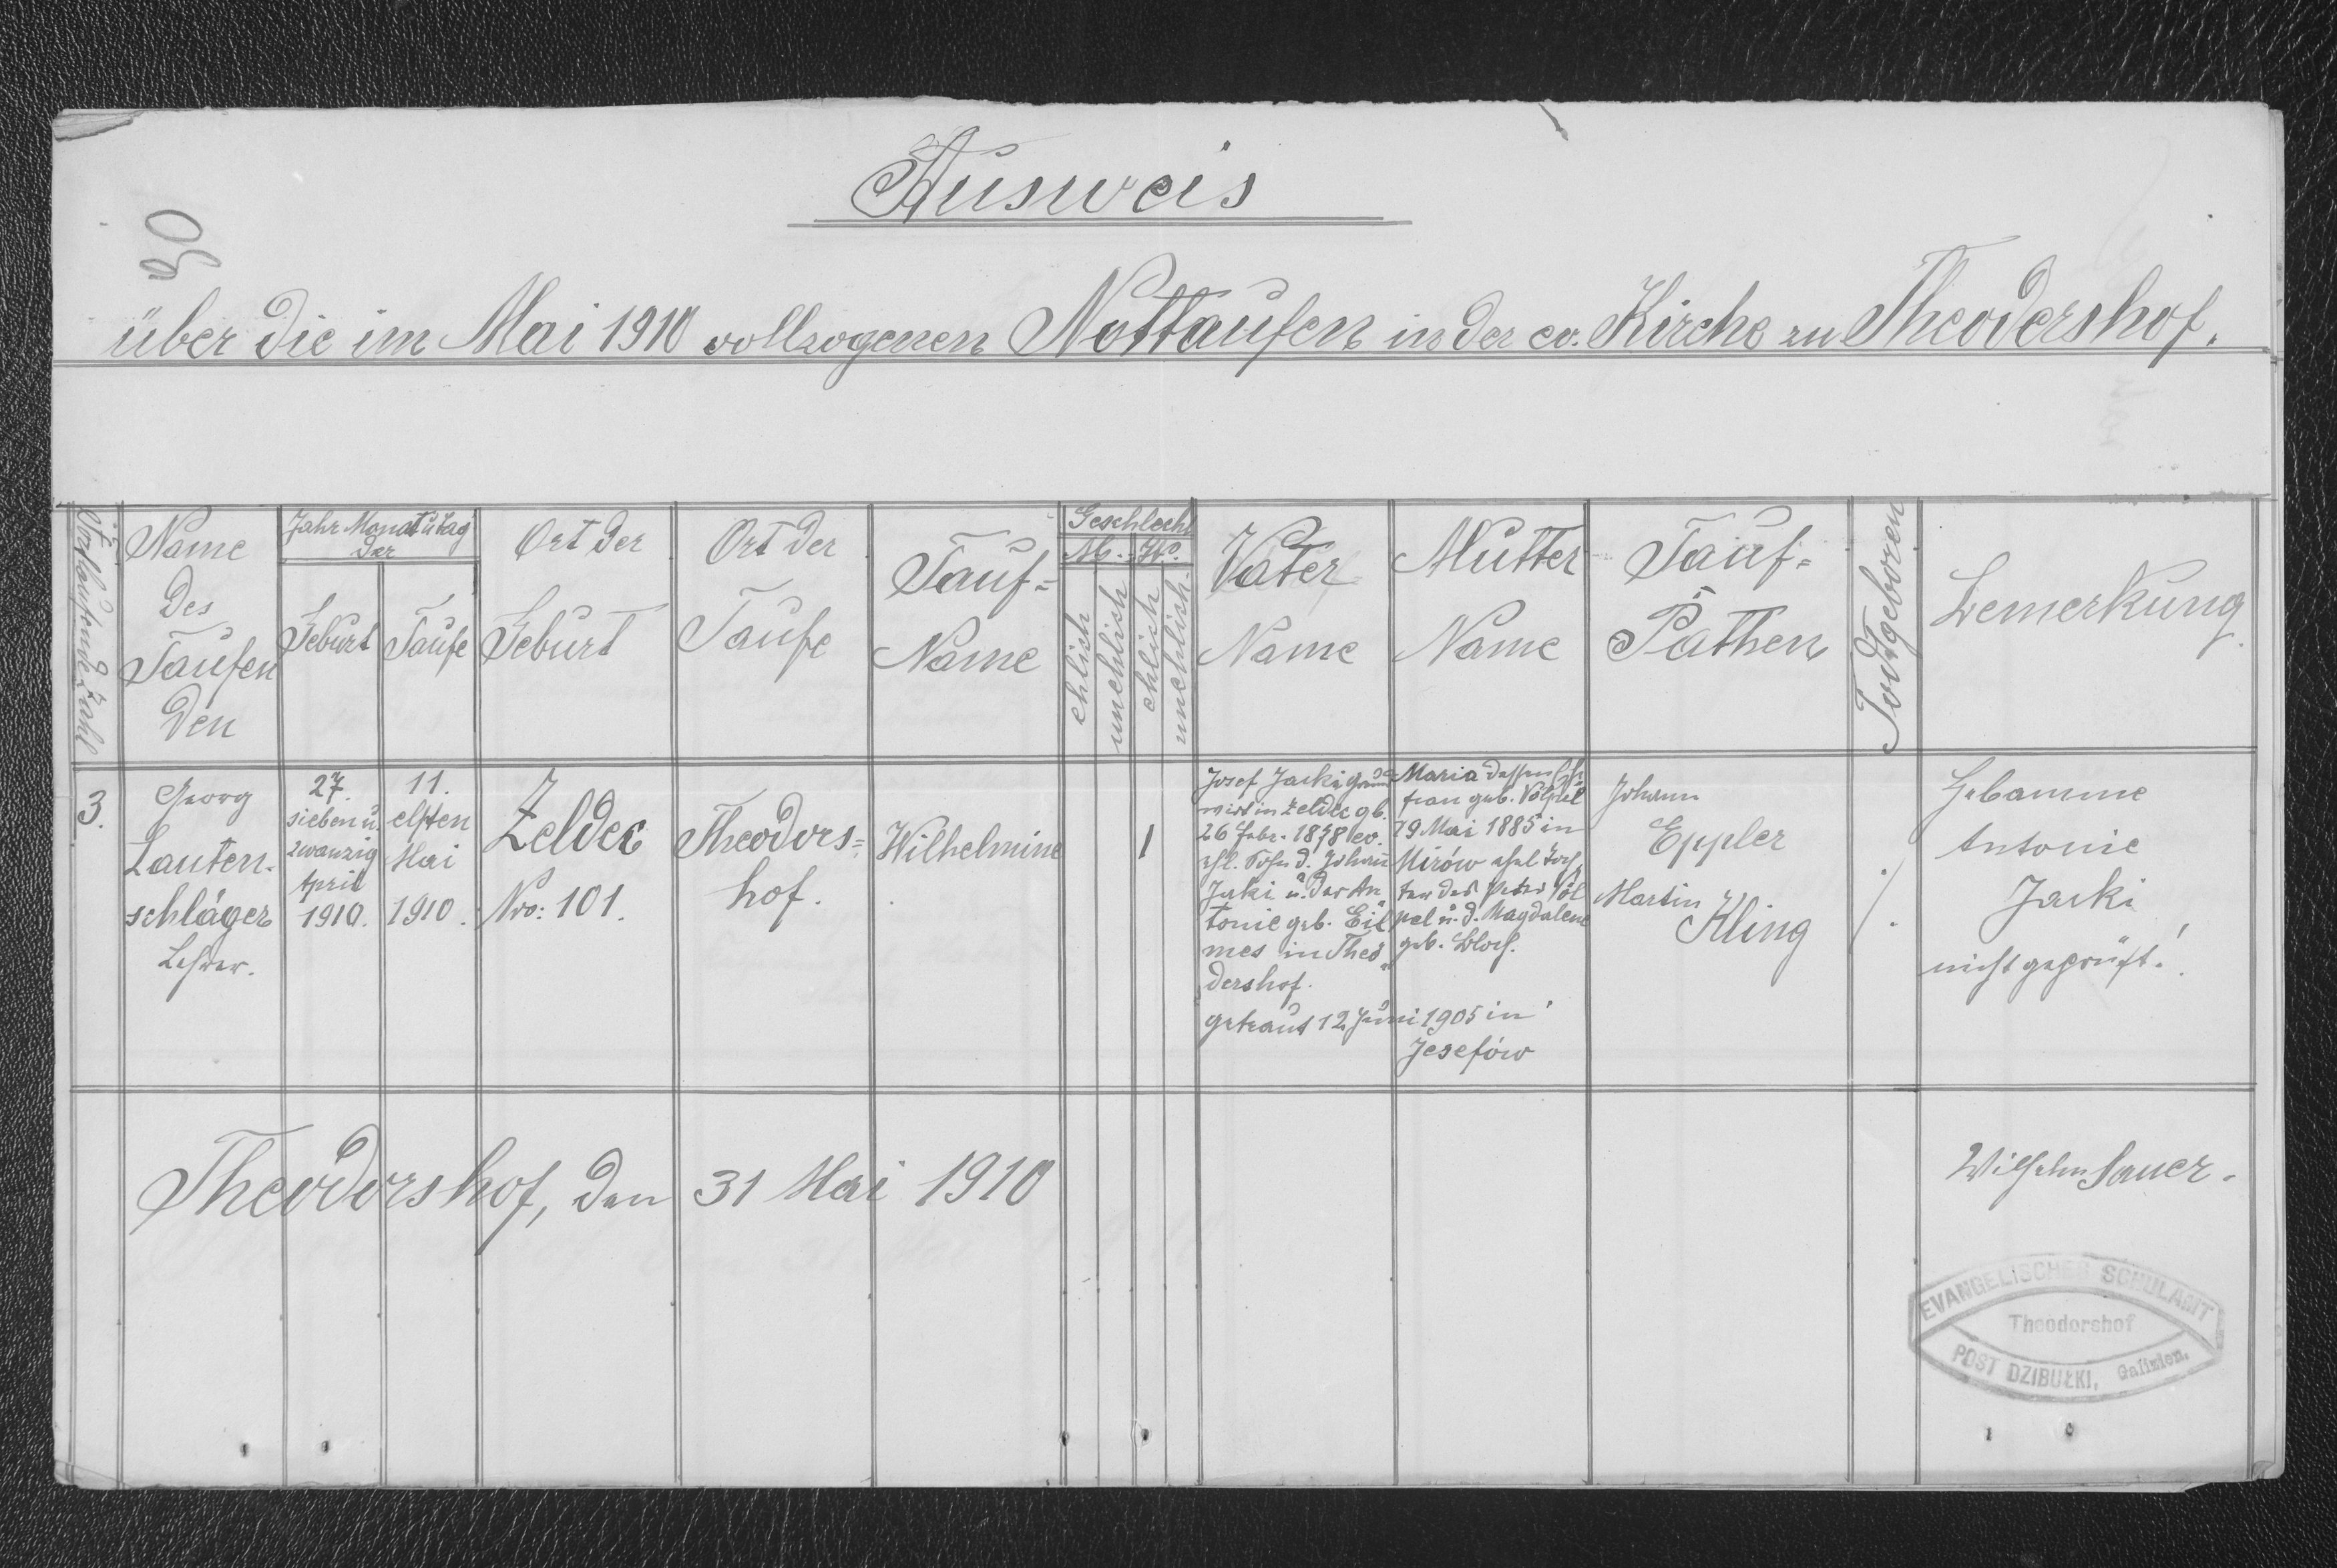 Ausweis
über die im Mai 1910 vollzogenen Nottaufen in der ev. Kirche zu Theodershof.
Fortlaufende Zahl
Name
des
Taufen
den
Jahr Monat u Tag
der
Geburt
Taufe
Ort der
Geburt
Ort der
Taufe
Tauf-
Name
Geschlecht
M. W.
ehlich
unehlich
ehlich
unehlich
Vater
Name
Mutter
Name
Tauf-
Pathen
Todtgeboren
Bemerkung
3.
Georg
Lauten-
schläger
Lehrer.
27.
sieben u.
zwanzig
April
1910.
11.
elften
Mai
1910.
Zeldec
Nro: 101.
Theodors=
hof.
Wilhelmine
1
Josef Jacki Grund
wirt in Zeldec gb.
26 Febr. 1878 ev.
ehl. Sohn d. Johann
Jacki u. der An
tonie geb. Eil
mes in Theo
dershof.
Maria dessen Ehe
frau geb. Völpel
19 Mai 1885 in
Mirów ehel Toch
ter des Peter Völ
pel u. d. Magdalene
geb. Bloch.
getraut 12 Juni 1905 in
Jesefów
Johann
Eppler
Martin
Kling
Hebamme
Antonie
Jacki
nicht geprüft!
Theodorshof, den 31 Mai 1910
Wilhelm Sauer.
EVANGELISCHES SCHULAMT
Theodorshof
POST DZIBUŁKI, Galizien.